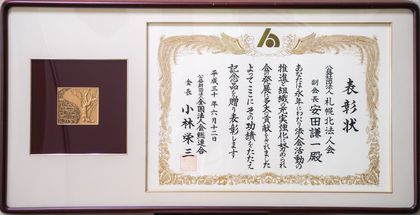 表彰状
公益社団法人 札幌北法人会
副会長 安田謙一殿
あなたは永年にわたり法人会活動の
推進と組織の充実強化に努められ
会の発展に多大の貢献をされました
よってここにその功績をたたえ
記念品を贈り表彰します
平成三十年六月十二日
公益財団法人 全国法人会総連合
会長 小林栄三